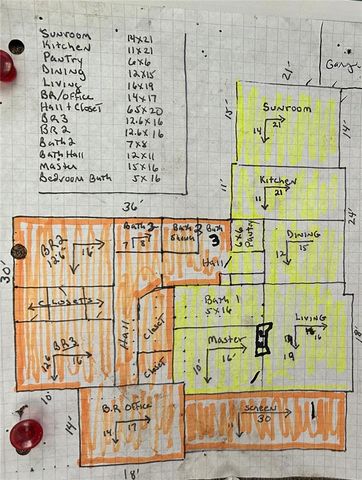 SUNROOM 14x21
Kitchen 11x21
Pantry 6x6
DINING 12x15
Living 16x19
BR/office 14x17
Hall + closet 65x20
BR3 12.6 x 16
BR 2 12.6 x 16
Bath 2 7x8
Bath Hall 12x11
Master 15x16
Bedroom Bath 5x16
21'
Garage
15'
SUNROOM
14 21
14'
11'
Kitchen
11 21
24'
36'
30'
BR2
12.6 16
Bath 2
7 8
Bath
3
Hall
6x6
Pantry
DINING
12 15
CLOSETS
Hall
Closet
Closet
Bath 1
5x16
Master
10' 16'
LIVING
16
19
18'
BR3
12.6 16
10'
14'
B.R OFFICE
14 17
18'
SCREEN
30